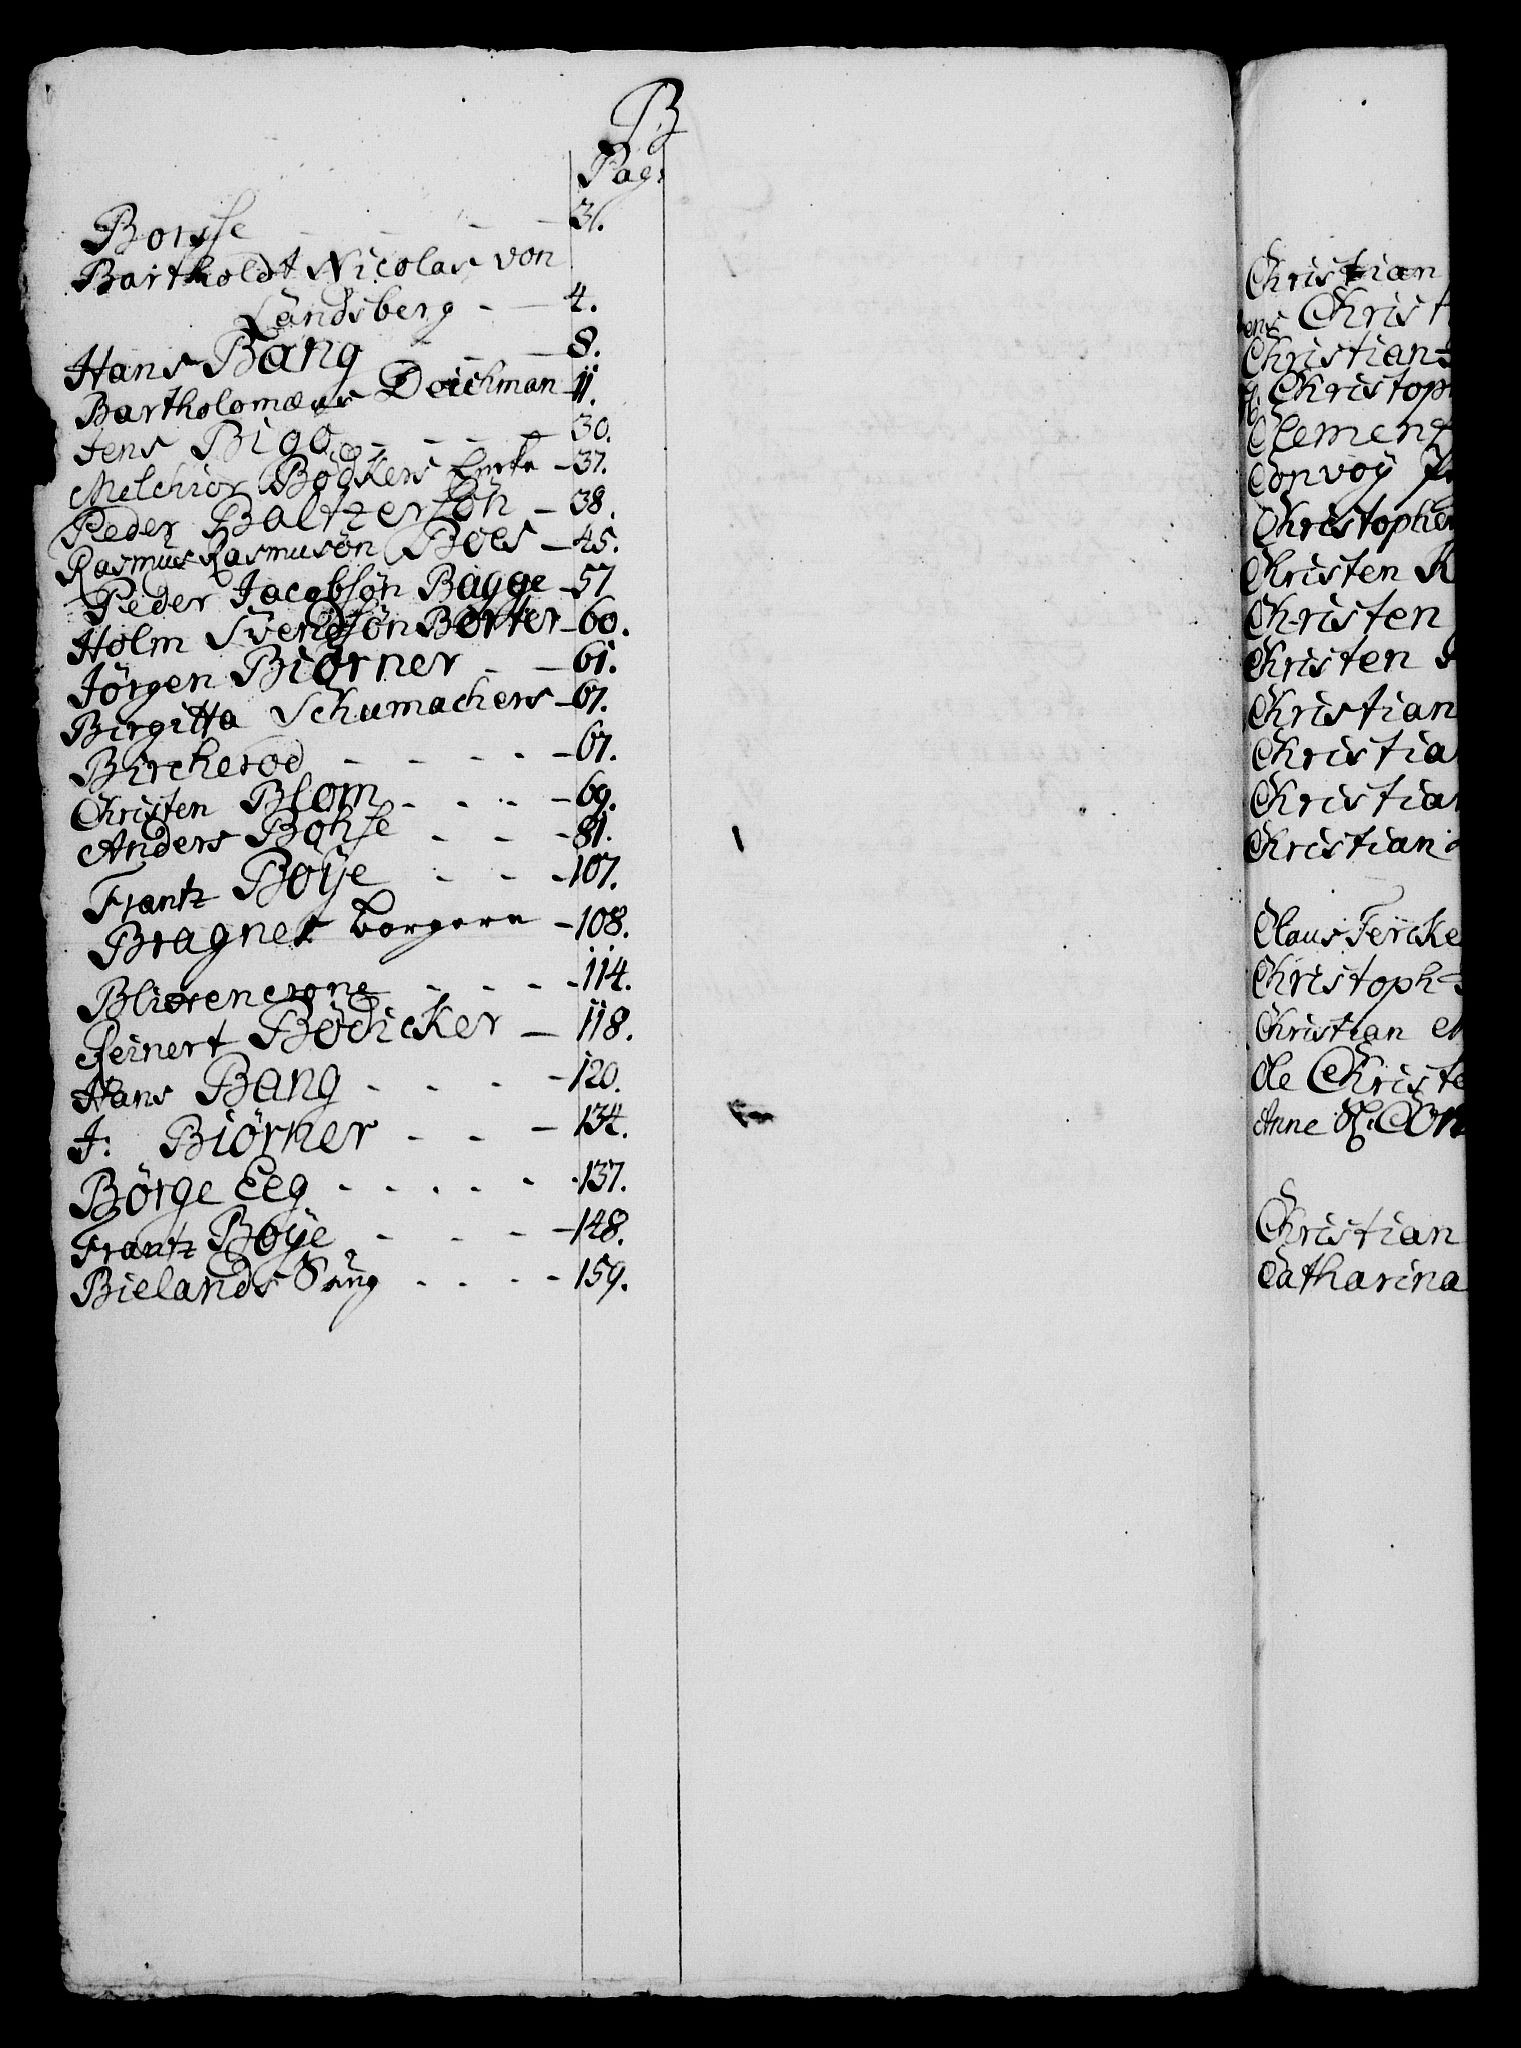 B
Pag:
Borsse - - - - 3.
Bartholdt Nicolas von
Landsberg - - 4.
Hans Bang - - 8.
Bartholomæus Deichman - 11.
Jens Bigo - - - - 30.
Melchior Bødkers Encke - 37.
Peder Baltzersøn - 38.
Rasmus Rasmusøn Boes - 45.
Peder Jacobsøn Bagge - 57
Holm Svendsøn Børtter - 60.
Jørgen Biørner - - 61.
Birgitta Schumachers - 67.
Bircherod - - - - - 67.
Christen Blom - - - - 69.
Anders Bohse - - - 81.
Frantz Boÿe - - - 107.
Bragnes borgere - 108.
114.
Reinert Bødicker - 118.
Hans Bang - - - - 120.
J: Biørner - - - 134.
Børge Eeg - - - - - - 137.
Frantz Boÿe - - - - 148.
Bielands Sang - - - - 159.
Christian
Christ
Christian
Christoph
Clemens
Convoy
Christopher
Christen
Christen
Christen
Christian
Christian
Christian
Christian
Claus
Christoph
Christian
de Christ
Anne
Christian
Catharina